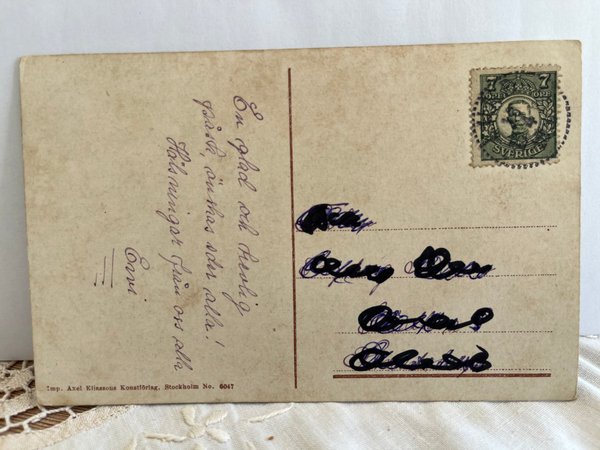 En glad och herlig
påsk, önskas eder alla!
Hälsningar från oss alla
Ervi
7 7
ÖRE ÖRE
SVERIGE
Imp. Axel Eliassons Konstförlag. Stockholm No. 6047